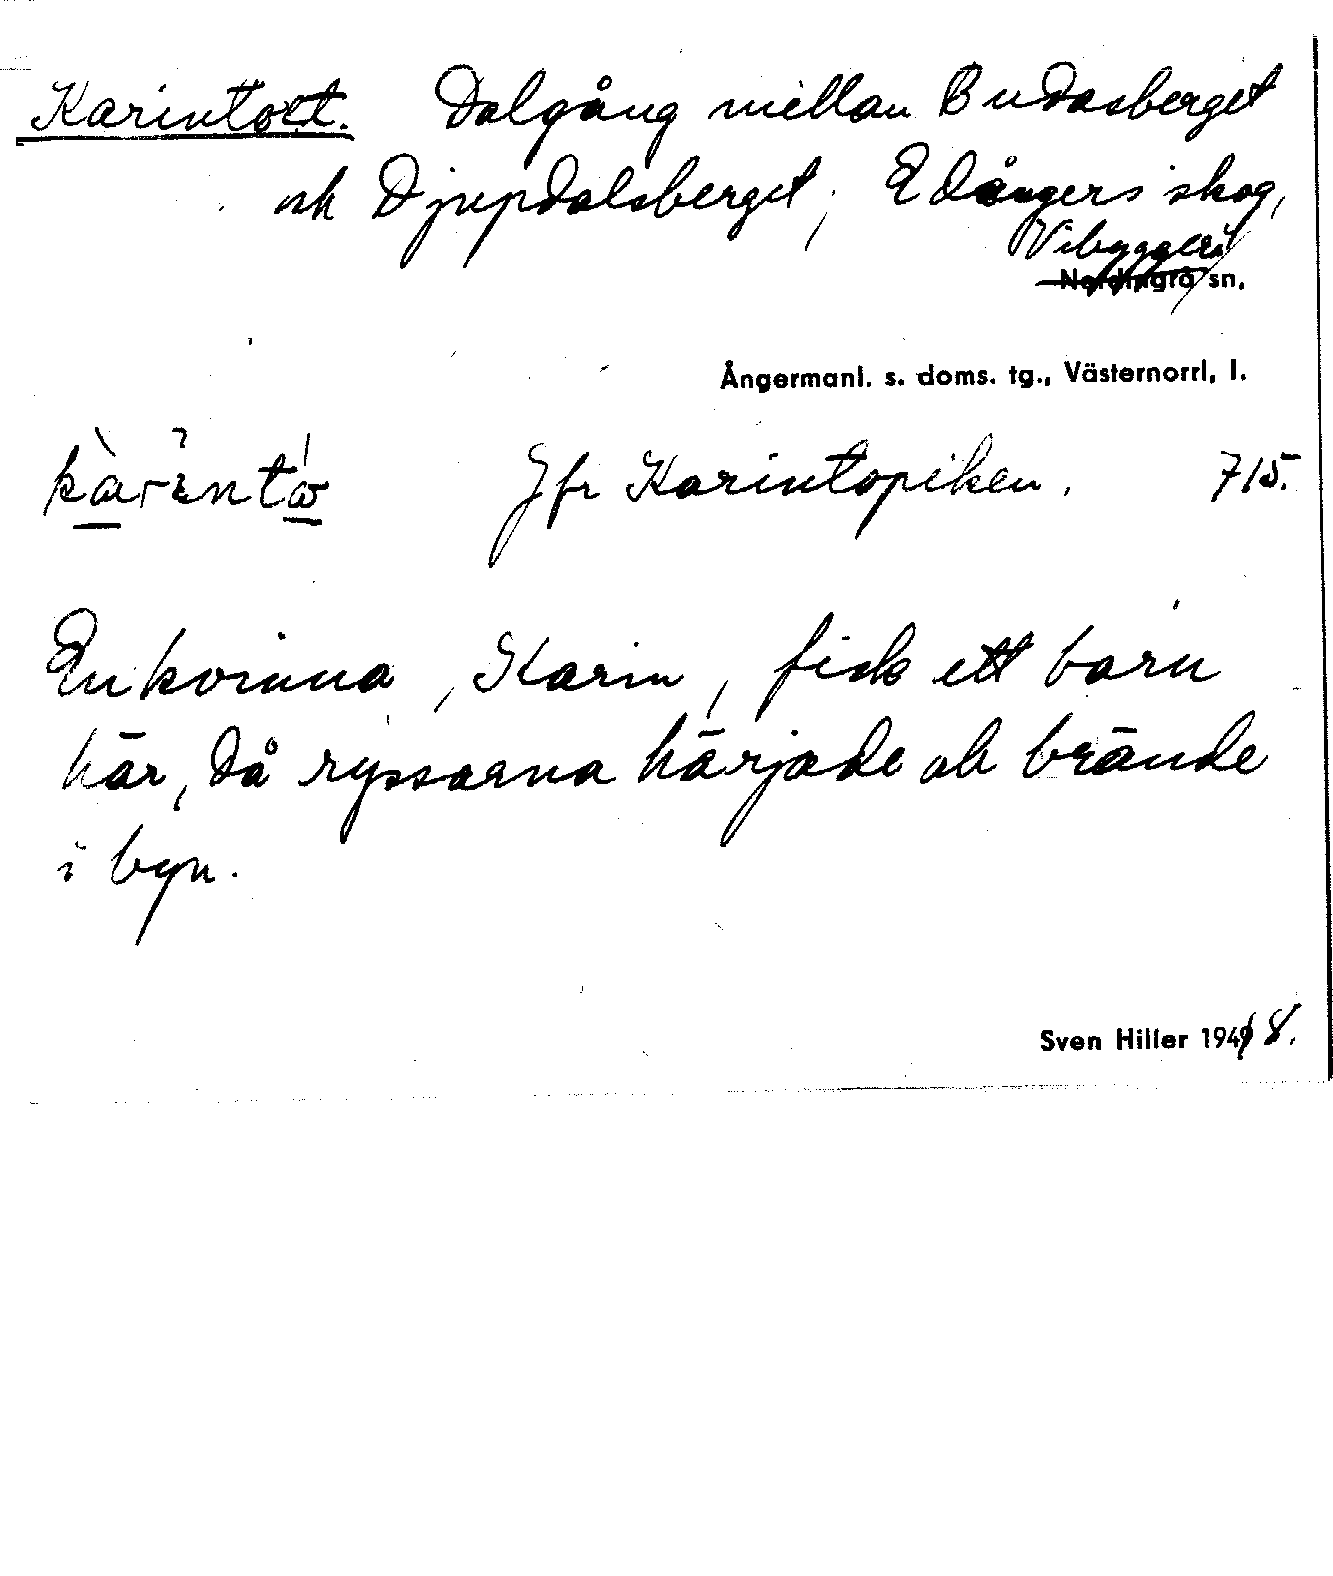 Karintoet. Dalgång mellan Budasberget
och Djupdalsberget; Edångers skog,
Vibyggerå
Nordingrå sn.
Ångermanl. s. doms. tg., Västernorrl. l.
Jfr Karintopiken. 715.
En kvinna, Karin, fick ett barn
här, då ryssarna härjade och brände
i byn.
Sven Hiller 1949 8.